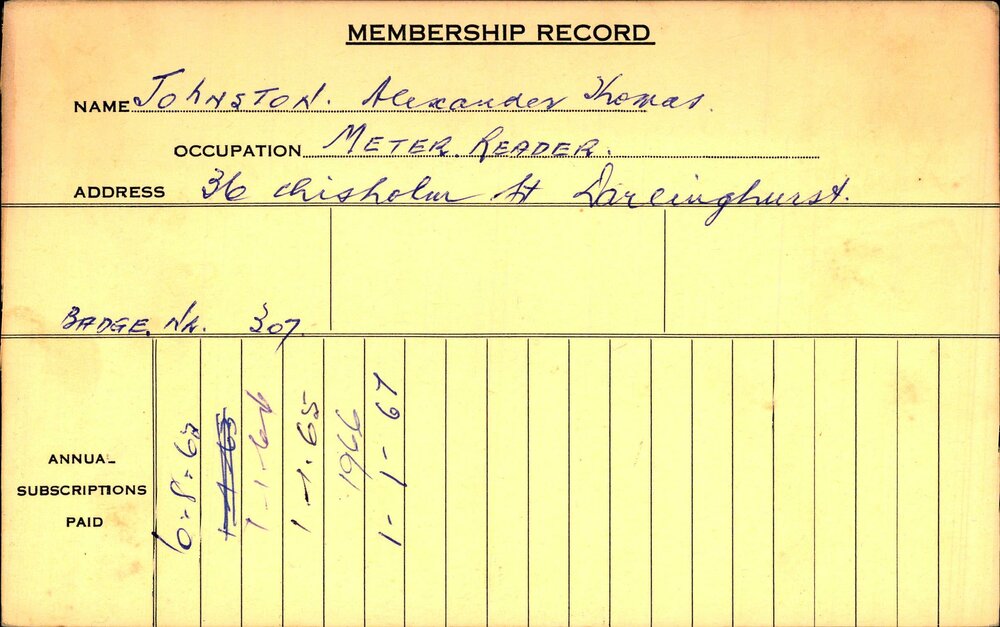 MEMBERSHIP RECORD
NAME JOHNSTON. Alexander Thomas.
OCCUPATION METER READER.
ADDRESS 36 Chisholm St Darlinghurst.
BADGE. No. 307.
ANNUAL
SUBSCRIPTIONS
PAID
1-1-64
1-1-65
1966
1-1-67